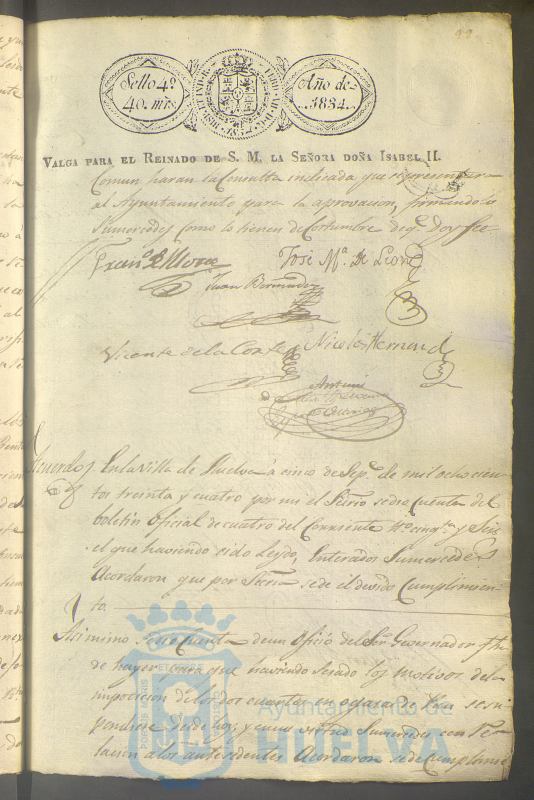 Sello 4º
40. mrs
HISP. ET IND. R.
FERD. VII. D. G.
1834
Año de
1834.
VALGA PARA EL REINADO DE S. M. LA SEÑORA DOÑA ISABEL II.
Comun haran la Consulta indicada que representara
al Ayuntamiento para la aprovacion, firmando
Sumercedes como lo tienen de Costumbre de qe. Doy fee
José Ma. De Leon
Juan Bermudez
Vicente de la Corte
Nicolás Hernand
Antoni
Acuerdo
En la Villa de Huelva á cinco de Sepe. de mil ochocien
tos treinta y cuatro por mi el Srio se dio Cuenta del
boletin Oficial de cuatro del Corriente No. cinqta. y Seis
el que haviendo sido Leydo, Enterados Sumercedes
Acordaron que por Sria se de el devido Cumplimien
to.
Asimismo se dio Cuenta de un Oficio del Sor. Governador
de hayer para que haviendo sesado los motivos de la
imposicion de los dos cuartos en ogaza de Pan se sus
pendiese desde hoy; y en su virtud Sumercedes con Re
lacion a los antecedentes Acordaron se de Cumplimie
Ayuntamiento de
HUELVA